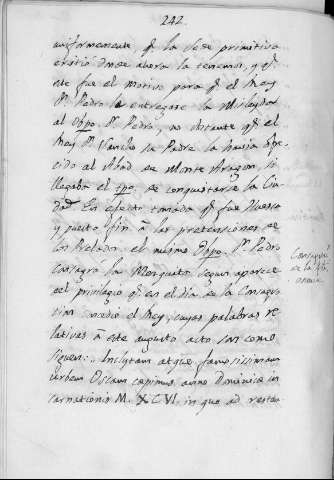 242.
uniformemente q.e la Sede primitiva
existió donde ahora la tenemos, y q.e
este fue el motivo para q.e el Rey
D.n Pedro le entregase la Mezquita
al Obpo. D.n Pedro, no obstante q.e el
Rey D.n Sancho su Padre la havia ofre
cido al Abad de Monte Aragon si
llegaba el tpo. de conquistarse la Ciu
dad. En efecto tomada q.e fue Huesca
y puesto fin à las pretensiones de
los Prelados, el mismo Obpo. D.n Pedro
consagró la Mezquita segun aparece
del privilegio q.e en el dia de la Consagra
cion concedió el Rey, cuyas palabras re
lativas à este augusto acto son como
siguen: Inclytam atque famosissimam
urbem Oscam cepimus anno Dominicæ in
carnationis M. XCVI. in qua ad restau
Consagrac.
de la